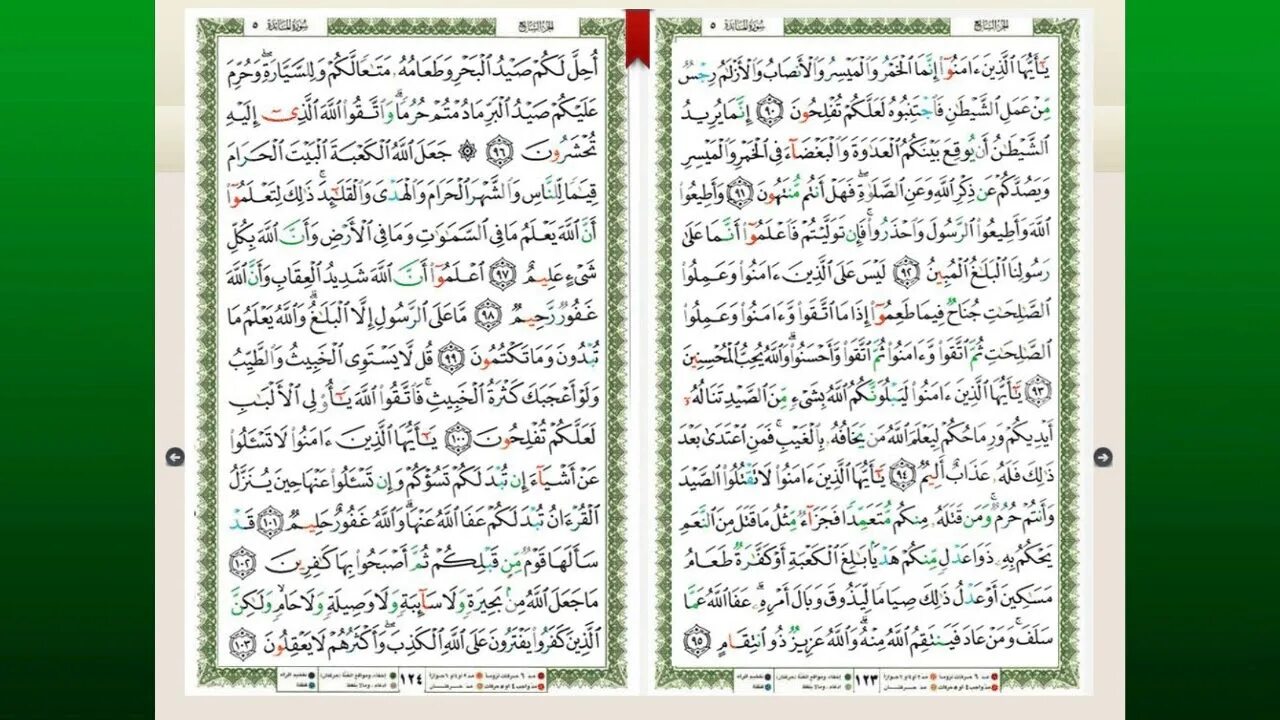 سُورَةُ المَائـدَة ٥
الجُزءُ السَّابِعُ
يَٰٓأَيُّهَا ٱلَّذِينَ ءَامَنُوٓا۟ إِنَّمَا ٱلْخَمْرُ وَٱلْمَيْسِرُ وَٱلْأَنصَابُ وَٱلْأَزْلَٰمُ رِجْسٌ
مِّنْ عَمَلِ ٱلشَّيْطَٰنِ فَٱجْتَنِبُوهُ لَعَلَّكُمْ تُفْلِحُونَ ٩٠ إِنَّمَا يُرِيدُ
ٱلشَّيْطَٰنُ أَن يُوقِعَ بَيْنَكُمُ ٱلْعَدَٰوَةَ وَٱلْبَغْضَآءَ فِى ٱلْخَمْرِ وَٱلْمَيْسِرِ
وَيَصُدَّكُمْ عَن ذِكْرِ ٱللَّهِ وَعَنِ ٱلصَّلَوٰةِ ۖ فَهَلْ أَنتُم مُّنتَهُونَ ٩١ وَأَطِيعُوا۟
ٱللَّهَ وَأَطِيعُوا۟ ٱلرَّسُولَ وَٱحْذَرُوا۟ ۚ فَإِن تَوَلَّيْتُمْ فَٱعْلَمُوٓا۟ أَنَّمَا عَلَىٰ
رَسُولِنَا ٱلْبَلَٰغُ ٱلْمُبِينُ ٩٢ لَيْسَ عَلَى ٱلَّذِينَ ءَامَنُوا۟ وَعَمِلُوا۟
ٱلصَّٰلِحَٰتِ جُنَاحٌ فِيمَا طَعِمُوٓا۟ إِذَا مَا ٱتَّقَوا۟ وَّءَامَنُوا۟ وَعَمِلُوا۟
ٱلصَّٰلِحَٰتِ ثُمَّ ٱتَّقَوا۟ وَّءَامَنُوا۟ ثُمَّ ٱتَّقَوا۟ وَّأَحْسَنُوا۟ ۗ وَٱللَّهُ يُحِبُّ ٱلْمُحْسِنِينَ
٩٣ يَٰٓأَيُّهَا ٱلَّذِينَ ءَامَنُوا۟ لَيَبْلُوَنَّكُمُ ٱللَّهُ بِشَىْءٍ مِّنَ ٱلصَّيْدِ تَنَالُهُۥٓ
أَيْدِيكُمْ وَرِمَاحُكُمْ لِيَعْلَمَ ٱللَّهُ مَن يَخَافُهُۥ بِٱلْغَيْبِ ۚ فَمَنِ ٱعْتَدَىٰ بَعْدَ
ذَٰلِكَ فَلَهُۥ عَذَابٌ أَلِيمٌ ٩٤ يَٰٓأَيُّهَا ٱلَّذِينَ ءَامَنُوا۟ لَا تَقْتُلُوا۟ ٱلصَّيْدَ
وَأَنتُمْ حُرُمٌ ۚ وَمَن قَتَلَهُۥ مِنكُم مُّتَعَمِّدًا فَجَزَآءٌ مِّثْلُ مَا قَتَلَ مِنَ ٱلنَّعَمِ
يَحْكُمُ بِهِۦ ذَوَا عَدْلٍ مِّنكُمْ هَدْيًۢا بَٰلِغَ ٱلْكَعْبَةِ أَوْ كَفَّٰرَةٌ طَعَامُ
مَسَٰكِينَ أَوْ عَدْلُ ذَٰلِكَ صِيَامًا لِّيَذُوقَ وَبَالَ أَمْرِهِۦ ۗ عَفَا ٱللَّهُ عَمَّا
سَلَفَ ۚ وَمَنْ عَادَ فَيَنتَقِمُ ٱللَّهُ مِنْهُ ۗ وَٱللَّهُ عَزِيزٌ ذُو ٱنتِقَامٍ ٩٥
١٢٣
الجُزءُ السَّابِعُ
سُورَةُ المَائـدَة ٥
أُحِلَّ لَكُمْ صَيْدُ ٱلْبَحْرِ وَطَعَامُهُۥ مَتَٰعًا لَّكُمْ وَلِلسَّيَّارَةِ ۖ وَحُرِّمَ
عَلَيْكُمْ صَيْدُ ٱلْبَرِّ مَا دُمْتُمْ حُرُمًا ۗ وَٱتَّقُوا۟ ٱللَّهَ ٱلَّذِىٓ إِلَيْهِ
تُحْشَرُونَ ٩٦ ۞ جَعَلَ ٱللَّهُ ٱلْكَعْبَةَ ٱلْبَيْتَ ٱلْحَرَامَ
قِيَٰمًا لِّلنَّاسِ وَٱلشَّهْرَ ٱلْحَرَامَ وَٱلْهَدْىَ وَٱلْقَلَٰٓئِدَ ۚ ذَٰلِكَ لِتَعْلَمُوٓا۟
أَنَّ ٱللَّهَ يَعْلَمُ مَا فِى ٱلسَّمَٰوَٰتِ وَمَا فِى ٱلْأَرْضِ وَأَنَّ ٱللَّهَ بِكُلِّ
شَىْءٍ عَلِيمٌ ٩٧ ٱعْلَمُوٓا۟ أَنَّ ٱللَّهَ شَدِيدُ ٱلْعِقَابِ وَأَنَّ ٱللَّهَ
غَفُورٌ رَّحِيمٌ ٩٨ مَّا عَلَى ٱلرَّسُولِ إِلَّا ٱلْبَلَٰغُ ۗ وَٱللَّهُ يَعْلَمُ مَا
تُبْدُونَ وَمَا تَكْتُمُونَ ٩٩ قُل لَّا يَسْتَوِى ٱلْخَبِيثُ وَٱلطَّيِّبُ
وَلَوْ أَعْجَبَكَ كَثْرَةُ ٱلْخَبِيثِ ۚ فَٱتَّقُوا۟ ٱللَّهَ يَٰٓأُو۟لِى ٱلْأَلْبَٰبِ
لَعَلَّكُمْ تُفْلِحُونَ ١٠٠ يَٰٓأَيُّهَا ٱلَّذِينَ ءَامَنُوا۟ لَا تَسْـَٔلُوا۟
عَنْ أَشْيَآءَ إِن تُبْدَ لَكُمْ تَسُؤْكُمْ وَإِن تَسْـَٔلُوا۟ عَنْهَا حِينَ يُنَزَّلُ
ٱلْقُرْءَانُ تُبْدَ لَكُمْ عَفَا ٱللَّهُ عَنْهَا ۗ وَٱللَّهُ غَفُورٌ حَلِيمٌ ١٠١ قَدْ
سَأَلَهَا قَوْمٌ مِّن قَبْلِكُمْ ثُمَّ أَصْبَحُوا۟ بِهَا كَٰفِرِينَ ١٠٢
مَا جَعَلَ ٱللَّهُ مِنۢ بَحِيرَةٍ وَلَا سَآئِبَةٍ وَلَا وَصِيلَةٍ وَلَا حَامٍ ۙ وَلَٰكِنَّ
ٱلَّذِينَ كَفَرُوا۟ يَفْتَرُونَ عَلَى ٱللَّهِ ٱلْكَذِبَ ۖ وَأَكْثَرُهُمْ لَا يَعْقِلُونَ ١٠٣
١٢٤